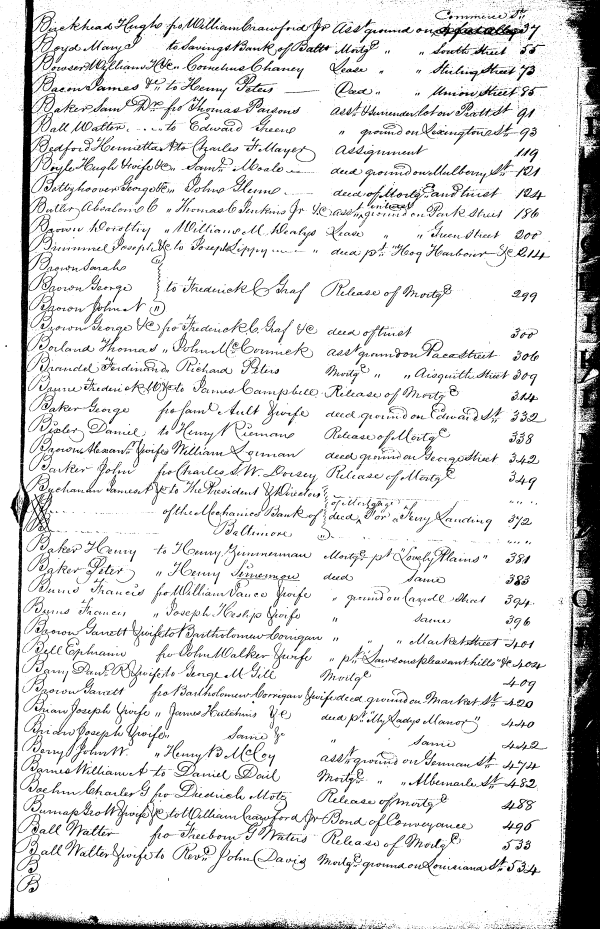 Commerce St
Buckhead Hugh fro William Crawford Jr Asst ground on 37
Boyd Mary to Savings Bank of Balto Mortge " " South Street 55
Bowser William H &c " Cornelius Chaney Lease " " Stirling Street 73
Bacon James &c to Henry Peters Deed " " Union Street 85
Baker Saml Dr fro Thomas Parsons asst & Surrender lot on Pratt St 91
Ball Walter to Edward Greene " ground on Lexington St 93
Bedford Henrietta to Charles F Mayer Assignment 119
Boyle Hugh & wife &c " Saml Moale deed ground on Mulberry St 121
Bettyhoover George &c " John Glenn deed of Mortge and trust 124
Butler Absalom C " Thomas C Jenkins Jr &c asst interest ground on Park Street 186
Brown Dorothy " William M Lease " " Green Street 200
Brummel Joseph &c to Joseph Lippy " deed pt "Hog Harbour" &c 214
Brown Sarah
Brown George to Frederick C Graf Release of Mortge 299
Brown John N "
Brown George &c fro Frederick C. Graf &c deed of trust 300
Borland Thomas " John McCormick asst ground on Paca Street 306
Brandel Ferdinand " Richard Peters Mortge " " Aisquith Street 309
Brune Frederick W &c to James Campbell Release of Mortge 314
Baker George fro Saml Ault & wife deed ground on Edward St 332
Bixler Daniel to Henry Rieman Release of Mortge 338
Brown Alexanr & wife " William Lorman deed ground on George Street 342
Barker John fro Charles S. W. Dorsey Release of Mortge 349
Buchanan James A &c to The President & Directors of Mortgage
of the Mechanics Bank of deed For "Ferry Landing 372
Baltimore "
Baker Henry to Henry Zimmerman Mortge pt "Lovely Plains" 381
Baker Peter " Henry deed same 383
Burns Francis fro William Vance & wife " ground on Carroll Street 394
Burns Francis " Joseph Heslip & wife " same 396
Brown Garrett & wife to Bartholomew Corrigan " " " Market Street 401
Bell Ephraim fro John Walker & wife " pt "Lawsons pleasant hills" &c 404
Barry Danl R & wife to George M Gill Mortge 409
Brown Garrett fro Bartholomew Corrigan & wife deed ground on Market St 420
Brian Joseph & wife " James Hutchins &c deed pt "My Ladys Manor" 440
Brian Joseph & wife " same &c " same 442
Berry John W. " Henry B McCoy asst ground on German St 474
Barnes William A to Daniel Dail Mortge " " Albemarle St 482
Boehm Charles G fro Diedrich Motz Release of mortge 488
Burnap Geo W & wife &c to William Crawford Jr Bond of Conveyance 496
Ball Walter fro Freeborn G Waters Release of Mortge 533
Ball Walter & wife to Revd John Davis Mortge ground on Louisiana St 534
B
B